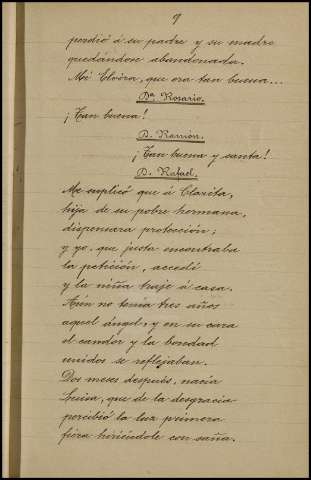 9
perdió á su padre y su madre
quedándose abandonada.
Mi Elvira, que era tan buena...
Dª Rosario.
¡Tan buena!
D. Ramón.
¡Tan buena y santa!
D. Rafael.
Me suplicó que á Clarita,
hija de su pobre hermana,
dispensara protección;
y yo, que justa encontraba
la petición, accedí
y la niña traje á casa.
Aún no tenía tres años
aquel ángel, y en su cara
el candor y la bondad
unidos se reflejaban.
Dos meses después, nacía
Luisa, que de la desgracia
percibió la luz primera
fiera hiriéndole con saña.